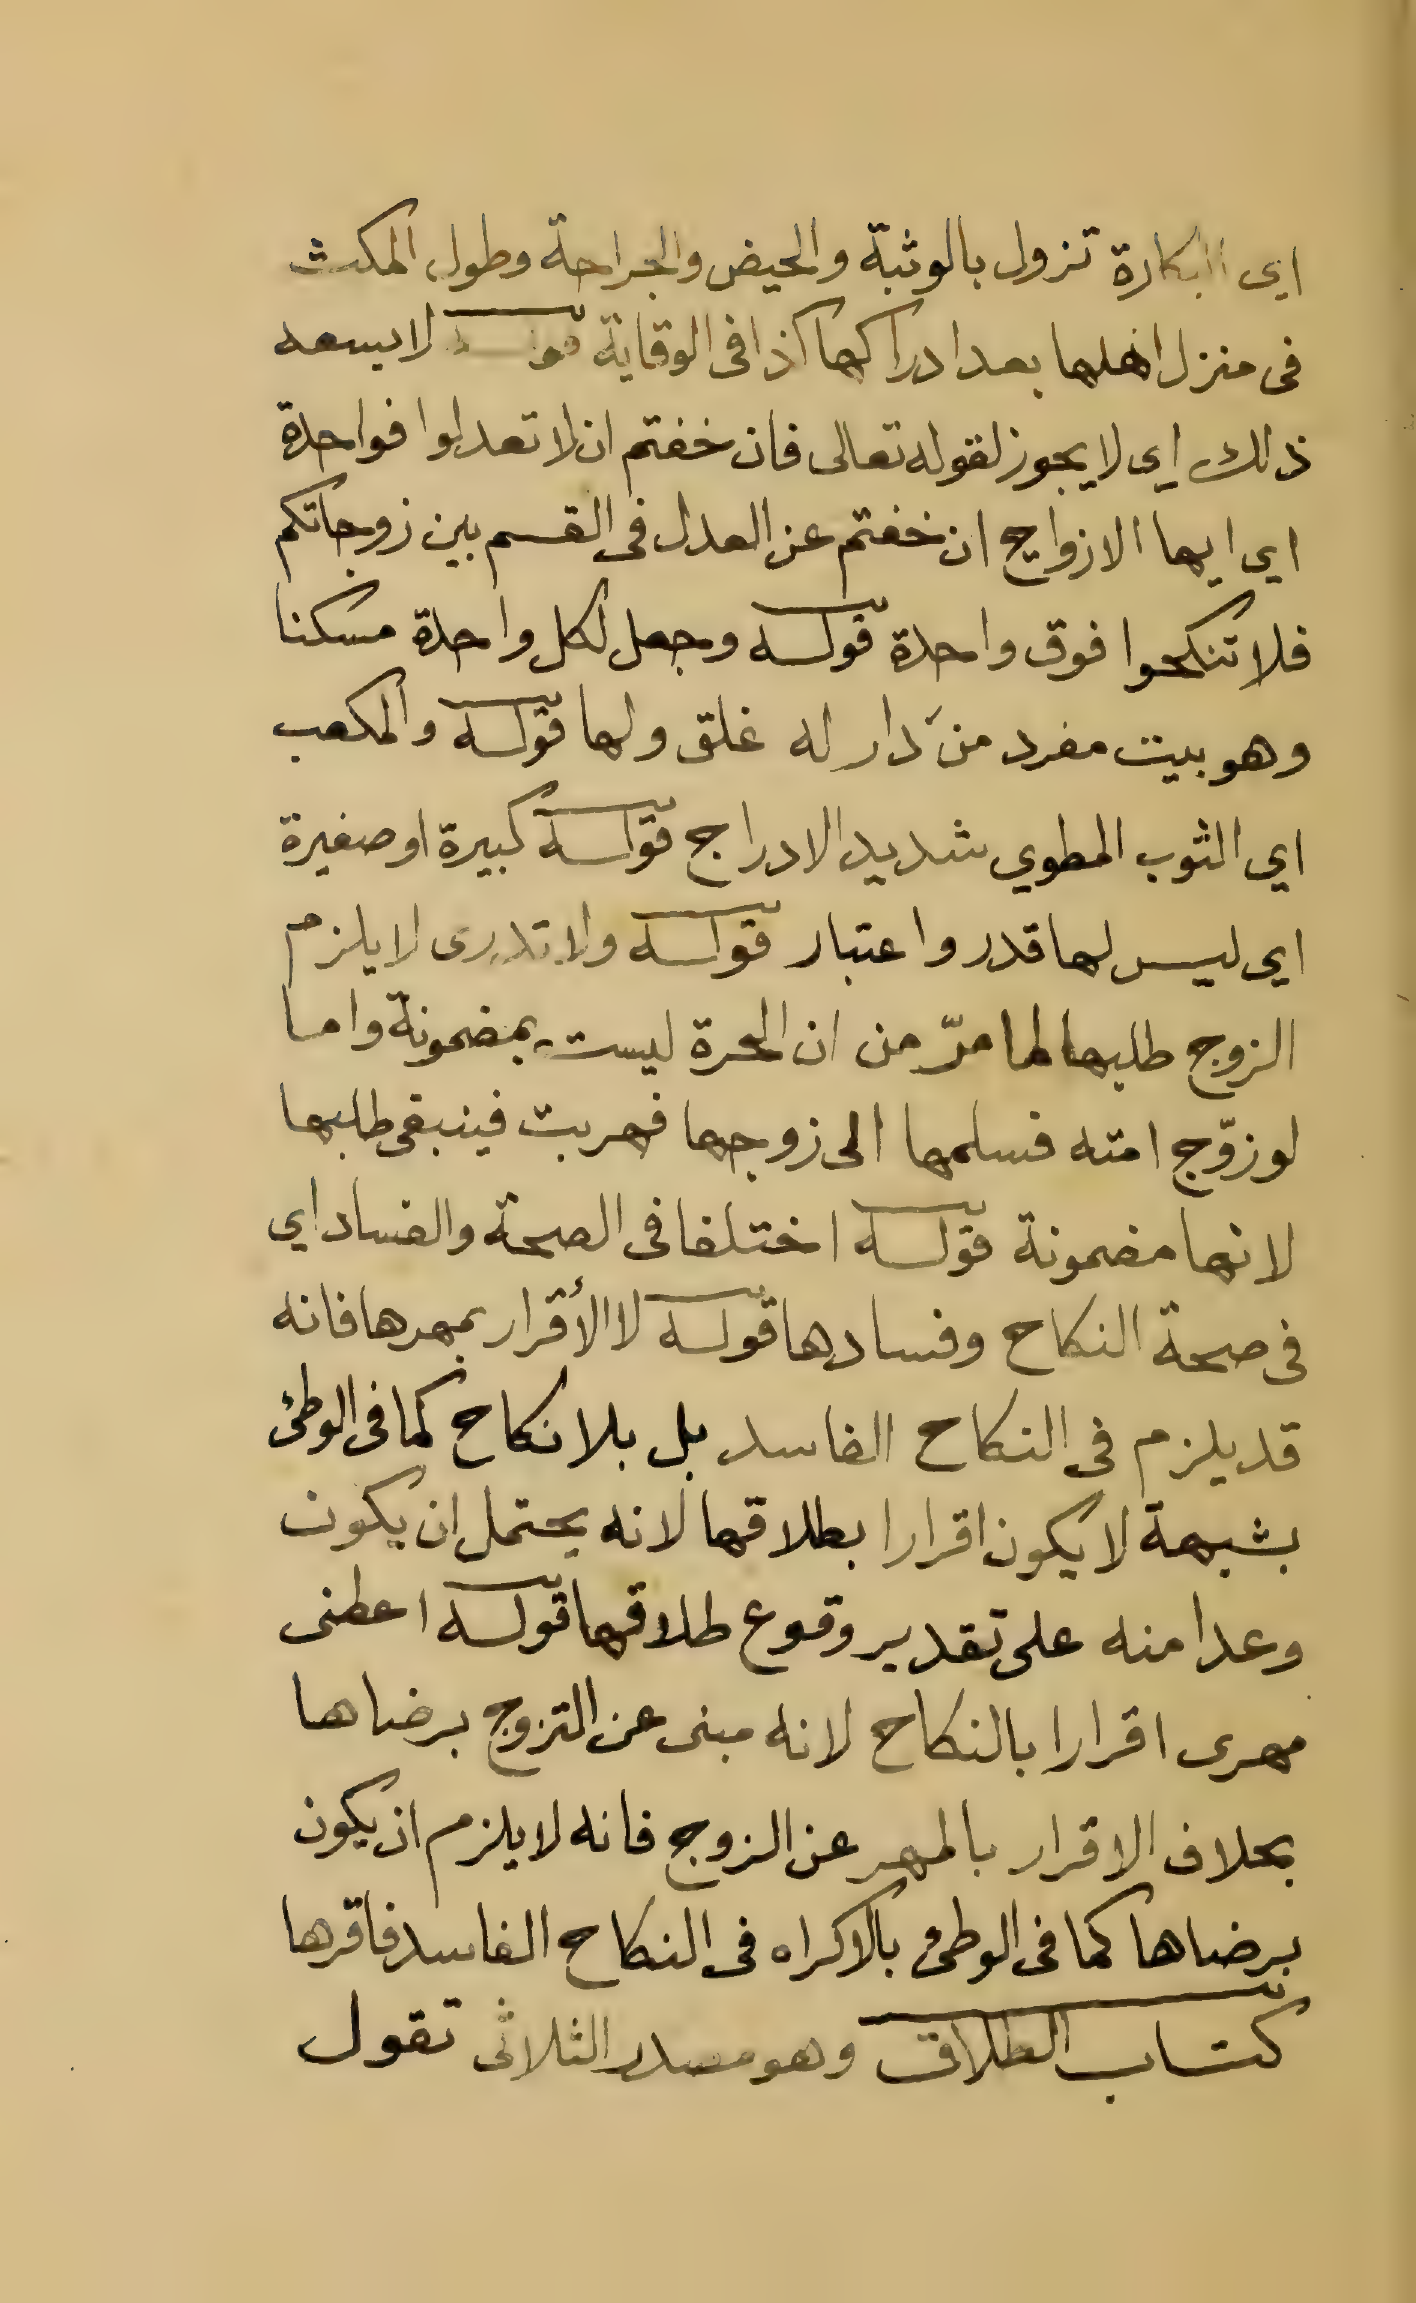 اى البكارة تزول بالوثبة والحيض والجراحة وطول المكث
فى منزل اهلها بعد ادراكها كذا فى الوقاية قوله لا يسعه
ذلك اى لا يجوز لقوله تعالى فان خفتم ان لا تعدلوا فواحدة
اى ايها الازواج ان خفتم عن العدل فى القسم بين زوجاتكم
فلا تنكحوا فوق واحدة قوله وجعل لكل واحدة مسكنا
وهو بيت مفرد من دار له غلق ولها قوله والمكعب
اي الثوب المطوي شديد الادراج قوله كبيرة او صغيرة
اى ليس لها قدر واعتبار قوله ولا تدرى لا يلزم
الزوج طلبها لما مرّ من ان الحرة ليست بمضمونة واما
لو زوّج امته فسلمها الى زوجها فهربت فينبغى طلبها
لانها مضمونة قوله اختلفا فى الصحة والفساد اي
فى صحة النكاح وفسادها قوله لا الأقرار بمهرها فانه
قد يلزم فى النكاح الفاسد بل بلا نكاح كما فى الوطئ
بشبهة لا يكون اقرارا بطلاقها لانه يحتمل ان يكون
وعدا منه على تقدير وقوع طلاقها قوله اعطنى
مهرى اقرارا بالنكاح لانه مبنى عن التزوج برضاها
بخلاف الاقرار بالمهر عن الزوج فانه لا يلزم ان يكون
برضاها كما فى الوطئ بالاكراه فى النكاح الفاسد فاقرها
كتاب الطلاق وهو مصدر الثلاثى تقول